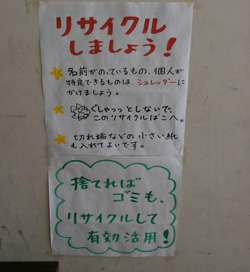 リサイクル
しましょう!
名前がのっているもの、個人が
特定できるものは、シュレッダーに
かけましょう。
ぐしゃっっとしないで、
このリサイクルばこへ。
切れ端などの小さい紙
も入れてよいです。
捨てれば
ゴミも、
リサイクルして
有効活用!